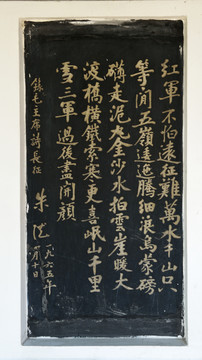 紅軍不怕遠征難萬水千山只
等閒五嶺逶迤騰細浪烏蒙磅
礴走泥丸金沙水拍雲崖暖大
渡橋橫鐵索寒更喜岷山千里
雪三軍過後盡開顏
錄毛主席詩長征
朱德
一九六五年
月十日